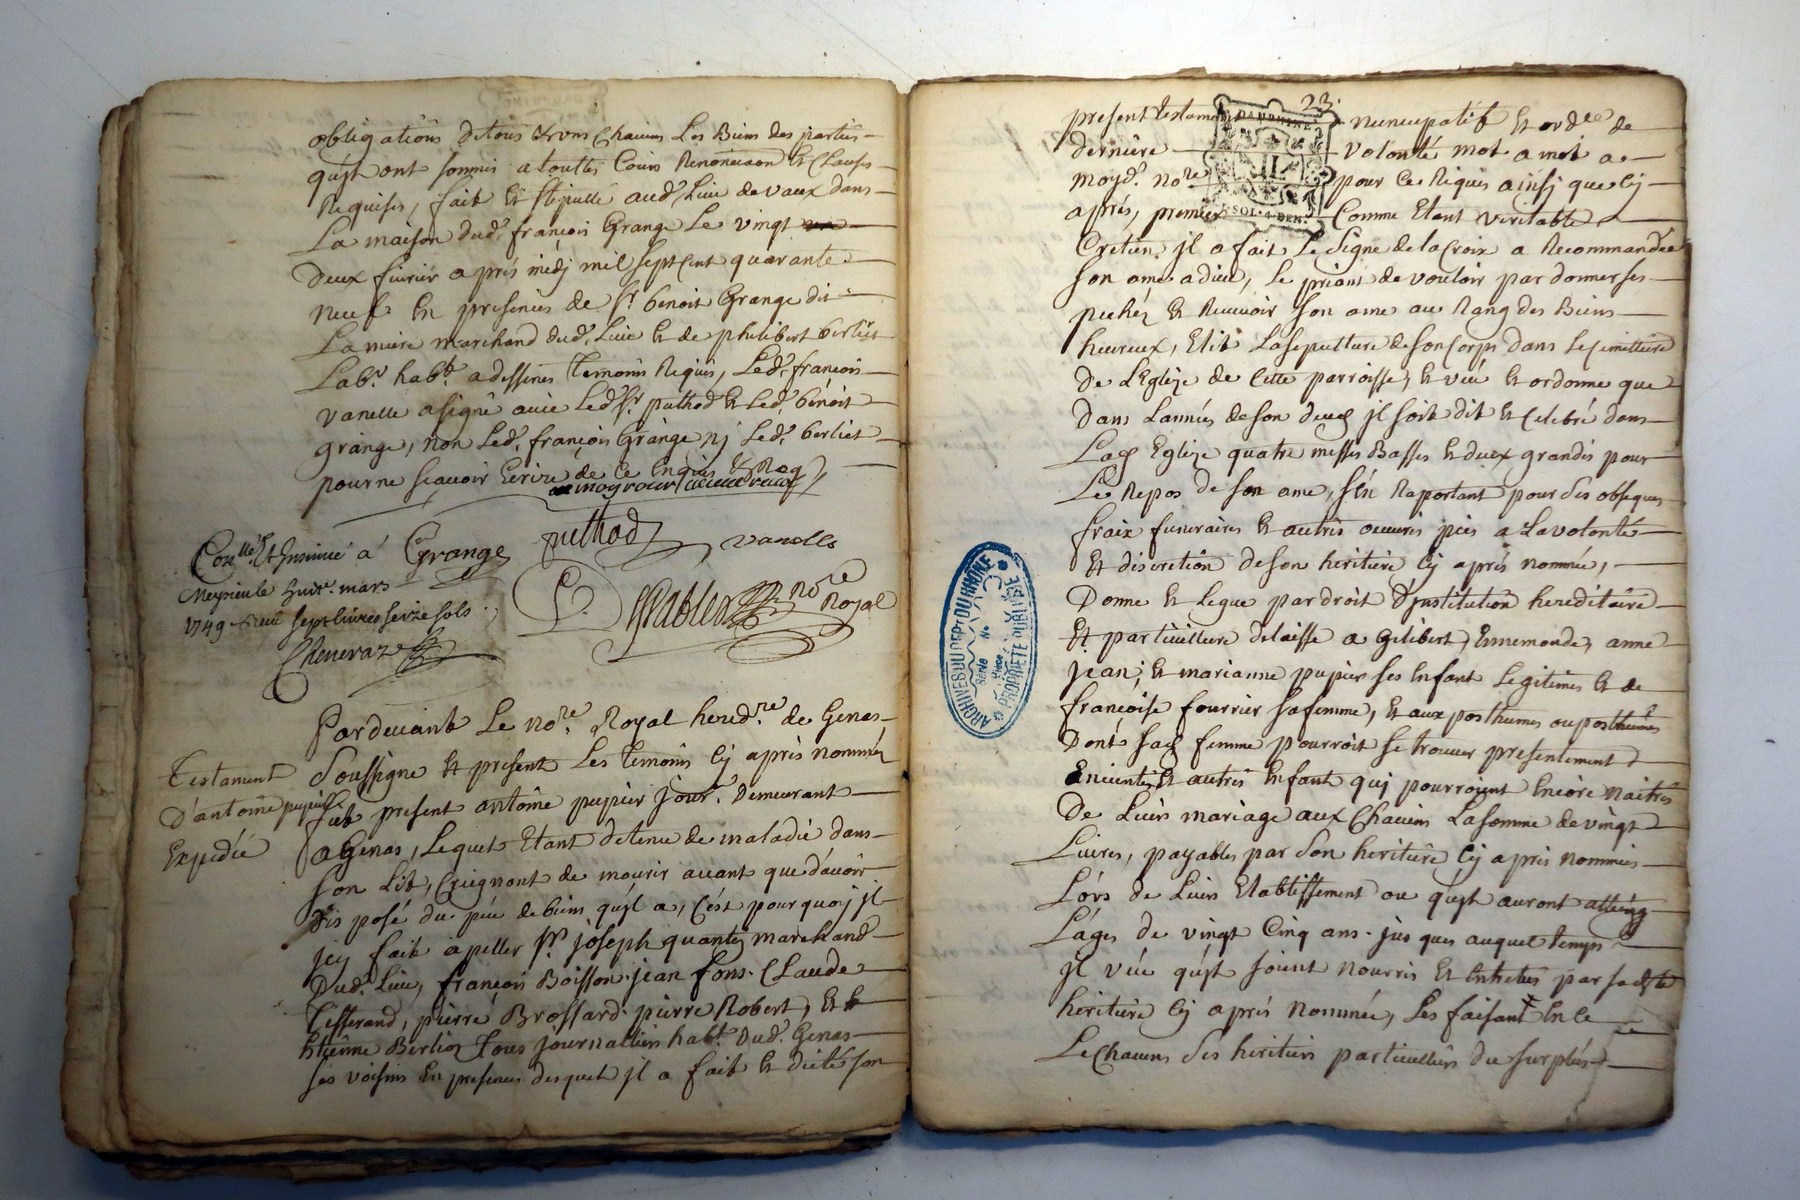 obligations de tous & uns chacuns Les Biens des parties
qu'ils ont soumis a touttes Cours Renonciaon Et Clauses
Requises, fait Et stipullé aud. Lieu de vaux dans
La maison dud. françois Grange Le vingt
deux fevrier après midj mil sept cent quarante
neuf En presences de Sr. benoit Grange dit
La mure marchand dud. Lieu Et de philibert berliet
Labr. habt. a dessines temoins Requis, Led. françois
vanelle a signé avec Led. Sr. puthod Et Led. benoit
grange, non Led. françois Grange nj Led. berliet
pour ne sçavoir Ecrire de Ce Enquis & Req
Grange puthod vanelle
Conllé. Et Insinué à
Meyzieu le huit. mars
1749 Reçu sept livres seize sols
Cheneraz
nore Royal
Pardevant Le nore. Royal heredre. de Genas
Testament
D'antoine pupier
Expedié
Soussigné Et present Les temoins Cy après nommés
fut present antoine pupier Jour. Demeurant
a Genas, Lequel Etant detenu de maladie dans
son Lit, Craignant de mourir avant que d'avoir
disposé du peu de biens qu'il a, C'est pourquoj jl
jcy fait apeller Sr. joseph quantin marchand
Dud. Lieu, françois Boisson. jean fons. Claude
Tisserand, pierre Brossard. pierre Robert, Et
Etienne Berlioz Tous journalliers habt. Dud. Genas
ses voisins En presences desquels jl a fait Et dicté son
23.
present testament nuncupatif Et ordre. de
derniere volonté mot a mot a
moyd. nore pour Ce Requis ainsj que Cy
après, premier Comme Etant veritable
Cretien jl a fait Le Signe de la Croix a Recommandée
Son ame a dieu, Le priant de vouloir pardonner ses
pechéz Et Recevoir Son ame au Rang des Biens
heureux, Elit La sepulture de son Corps dans Le Cimettiere
De L'Eglize de Cette parroisse, Et veu Et ordonne que
Dans L'année de son deces jl soit dit Et Celebré dans
Lad Eglize quatre messes Basses Et deux grandes pour
Le Repos de Son ame, s'en Raportant pour ses obseques
fraix funeraires Et autres œuvres pies a La volonté
Et discretion de son heritiere Cy après nommée,
Donne Et Legue par droit D'jnstitution hereditaire
Et particuillere delaisse a Gilibert, Ennemonde, anne
jean, Et marianne pupier ses Enfant Legitimes Et de
françoise fourrier sa femme, Et aux posthumes ou posthumes
Dont sad femme pourroit se trouver presentement
Enceinte Et autres Enfant quj pourroient Encore naitres
De Leurs mariage aux Chacuns La somme de vingt
Livres, payables par Son heritiere Cy après nommées
Lors de Leurs Etablissement ou qu'ils auront atteing
L'ages de vingt Cinq ans. jusques auquel temps
jl veu qu'ils soient nourris Et Entretus par sadte
heritiere Cy après nommée, Les faisant En Ce
Le Chacuns Ses heritiers particulliers du surplus
DAUPHINE
SOL. 4 DEN.
ARCHIVES DU DEPT DU RHONE
Série No
Pièce
PROPRIÉTÉ PUBLIQUE